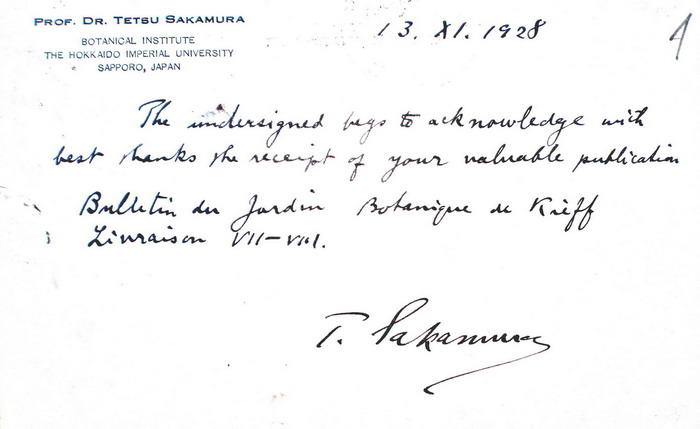 PROF. DR. TETSU SAKAMURA
BOTANICAL INSTITUTE
THE HOKKAIDO IMPERIAL UNIVERSITY
SAPPORO, JAPAN
13. XI. 1928
The undersigned begs to acknowledge with
best thanks the receipt of your valuable publication
Bulletin du Jardin Botanique de Kieff
Livraison VII-VIII.
T. Sakamura